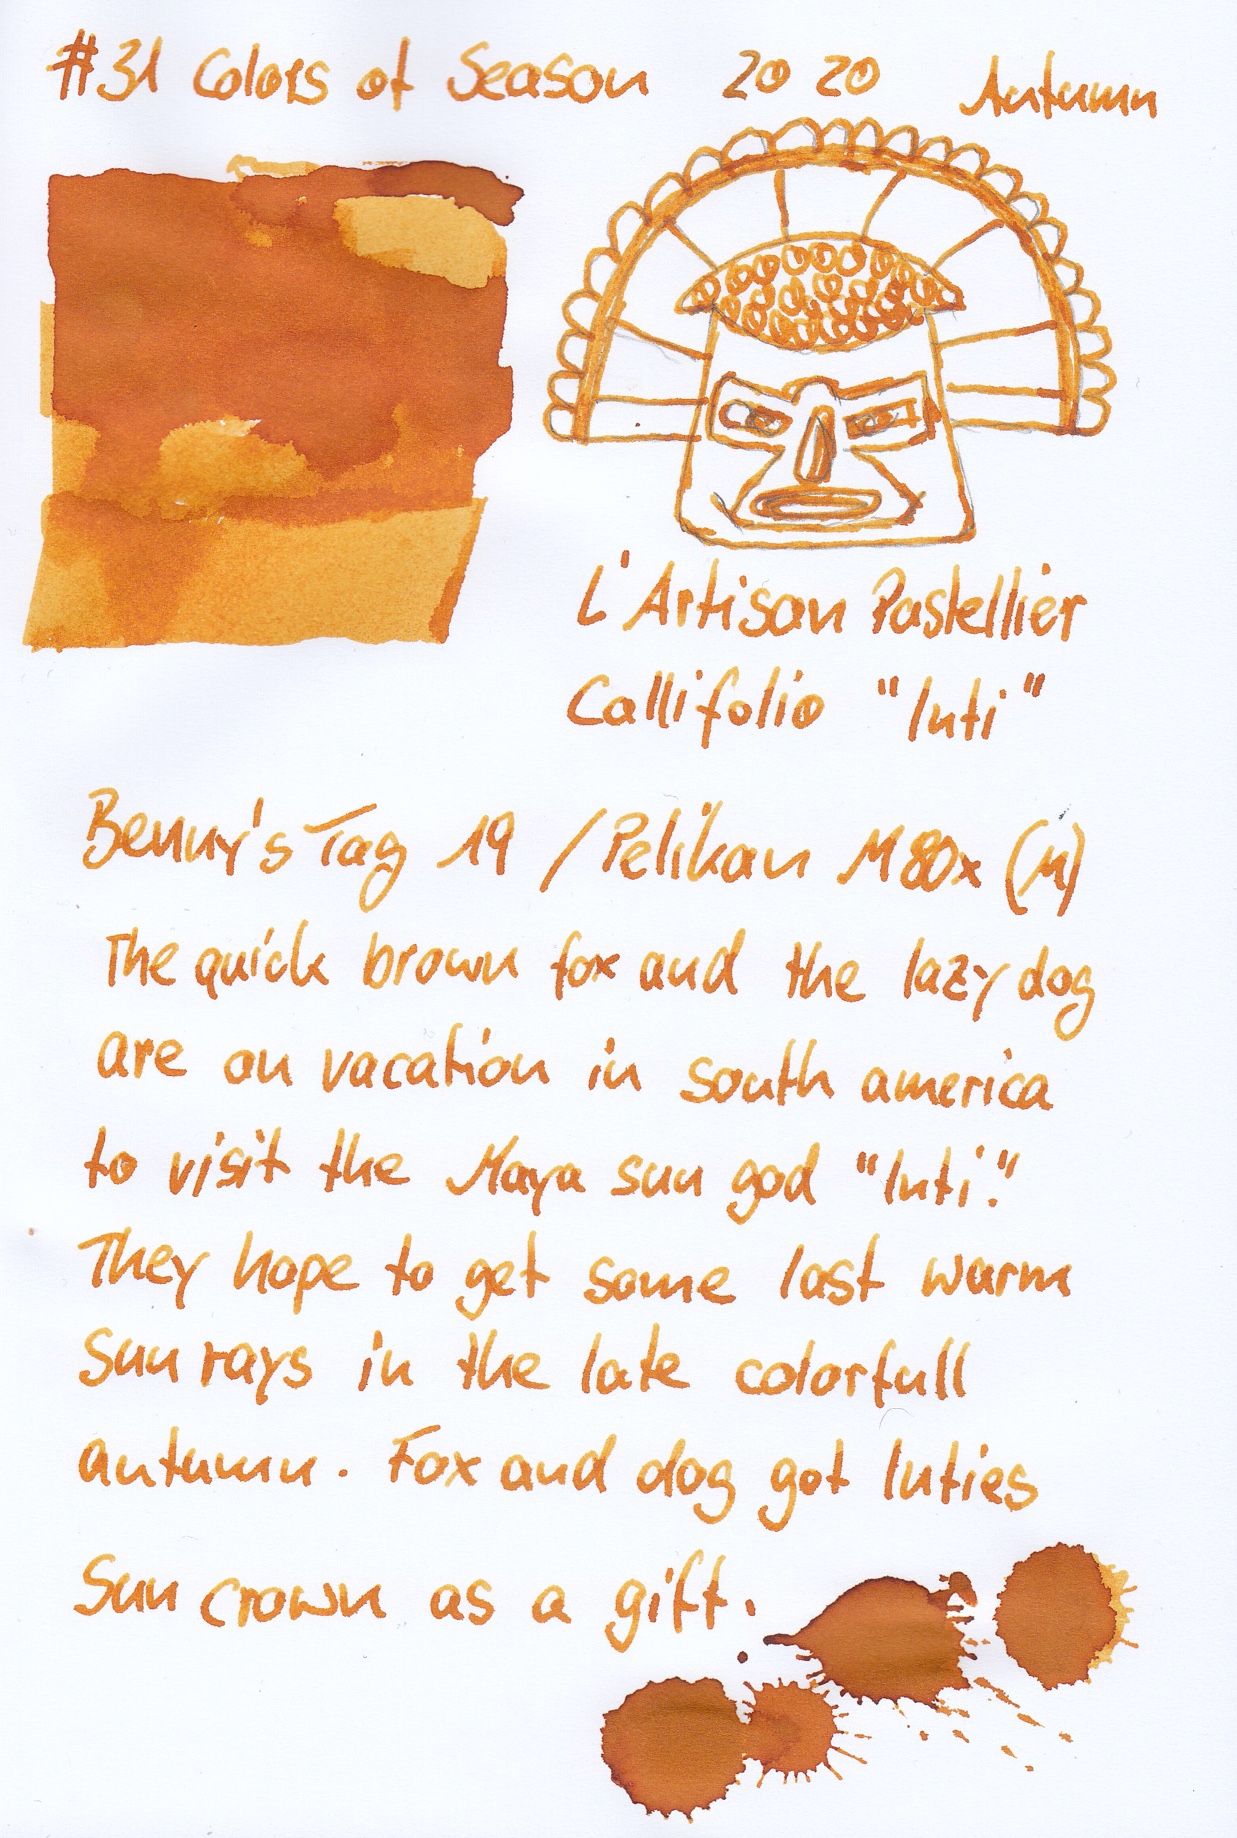 #31 Colors of Season 2020 Autumn
L'Artisan Pastellier
Callifolio "Inti"
Benny's Tag 19 / Pelikan M80x (M)
The quick brown fox and the lazy dog
are on vacation in south america
to visit the Maya sun god "Inti."
They hope to get some last warm
Sun rays in the late colorfull
autumn. Fox and dog got Inties
Sun crown as a gift.